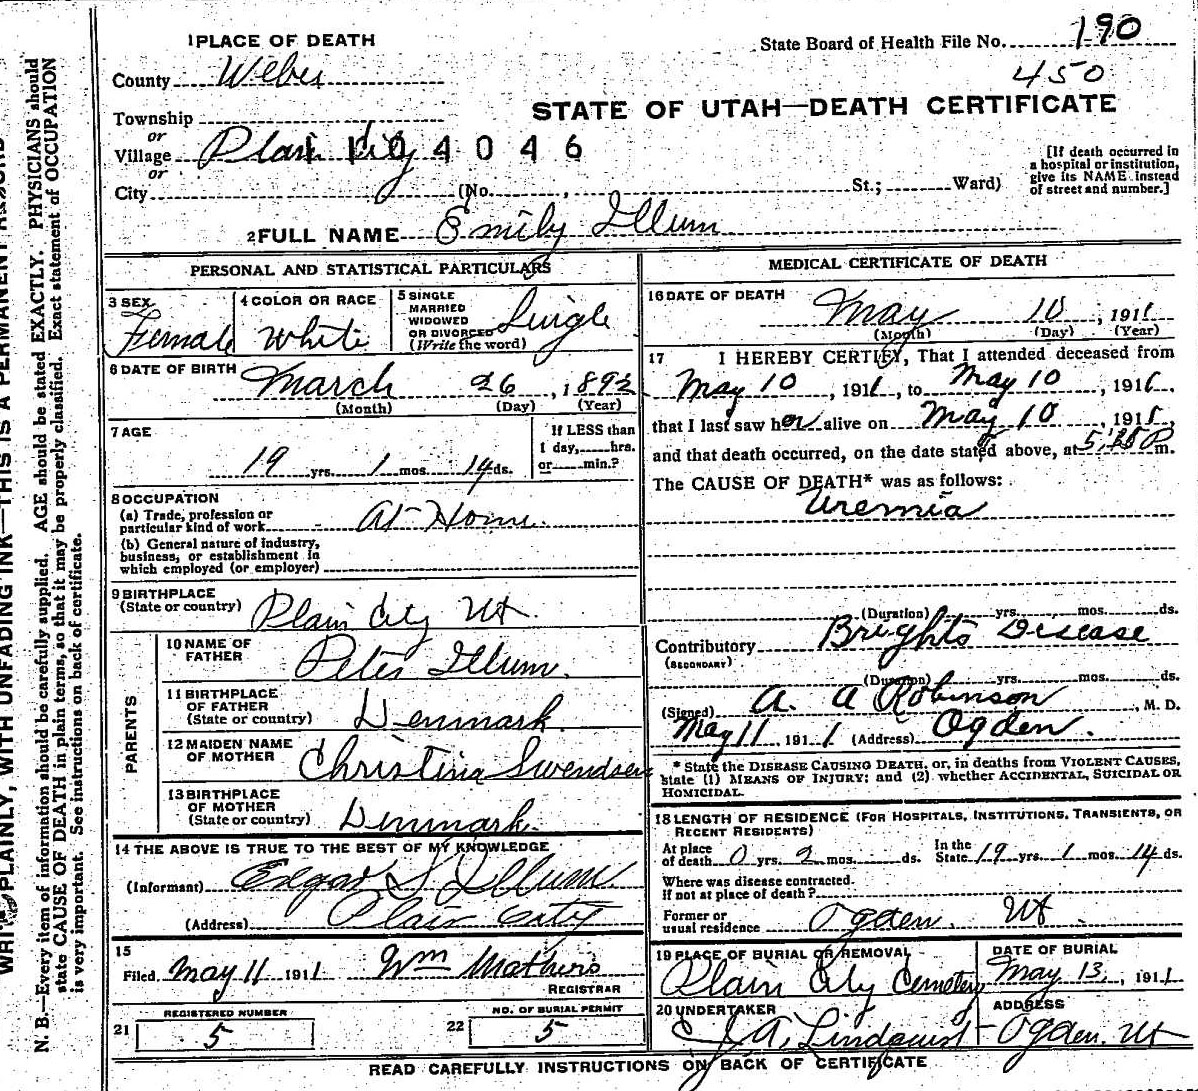 WRITE PLAINLY, WITH UNFADING INK—THIS IS A PERMANENT RECORD
N. B.—Every item of information should be carefully supplied. AGE should be stated EXACTLY. PHYSICIANS should
state CAUSE OF DEATH in plain terms, so that it may be properly classified. Exact statement of OCCUPATION
is very important. See instructions on back of certificate.
1 PLACE OF DEATH
State Board of Health File No. 190
450
County Weber
STATE OF UTAH—DEATH CERTIFICATE
Township
or
Village Plain City
4 0 4 6
or
City (No. , St.; Ward)
[If death occurred in
a hospital or institution,
give its NAME instead
of street and number.]
2 FULL NAME Emily Illum
PERSONAL AND STATISTICAL PARTICULARS
3 SEX Female
4 COLOR OR RACE White
5 SINGLE
MARRIED
WIDOWED
OR DIVORCED
(Write the word) Single
6 DATE OF BIRTH March 26, 1892
(Month) (Day) (Year)
7 AGE
19 yrs. 1 mos. 14 ds.
If LESS than
1 day, hrs.
or min.?
8 OCCUPATION
(a) Trade, profession or
particular kind of work At Home.
(b) General nature of industry,
business, or establishment in
which employed (or employer)
9 BIRTHPLACE
(State or country) Plain City Ut
PARENTS
10 NAME OF
FATHER Peter Illum.
11 BIRTHPLACE
OF FATHER
(State or country) Denmark
12 MAIDEN NAME
OF MOTHER Christina Swendsen
13 BIRTHPLACE
OF MOTHER
(State or country) Denmark.
14 THE ABOVE IS TRUE TO THE BEST OF MY KNOWLEDGE
(Informant) Edgar S. Illum.
(Address) Plain City
15
Filed May 11 1911 Wm Mathers
REGISTRAR
21 REGISTERED NUMBER
5
22 NO. OF BURIAL PERMIT
5
MEDICAL CERTIFICATE OF DEATH
16 DATE OF DEATH May 10, 1911
(Month) (Day) (Year)
17 I HEREBY CERTIFY, That I attended deceased from
May 10, 1911, to May 10, 1911.
that I last saw her alive on May 10 1911,
and that death occurred, on the date stated above, at P m.
The CAUSE OF DEATH* was as follows:
Uremia
(Duration) yrs. mos. ds.
Contributory Brights Disease
(SECONDARY)
(Duration) yrs. mos. ds.
(Signed) A. A Robinson, M. D.
May 11 1911 (Address) Ogden.
* State the DISEASE CAUSING DEATH, or, in deaths from VIOLENT CAUSES,
state (1) MEANS OF INJURY; and (2) whether ACCIDENTAL, SUICIDAL OR
HOMICIDAL.
18 LENGTH OF RESIDENCE (FOR HOSPITALS, INSTITUTIONS, TRANSIENTS, OR
RECENT RESIDENTS)
At place
of death 0 yrs. 2 mos. ds.
In the
State 19 yrs. 1 mos. 14 ds.
Where was disease contracted.
If not at place of death?
Former or
usual residence Ogden, Ut.
19 PLACE OF BURIAL OR REMOVAL
Plain City Cemetery
DATE OF BURIAL
May 13, 1911
20 UNDERTAKER
J. A. Lindquist
ADDRESS
Ogden. Ut
READ CAREFULLY INSTRUCTIONS ON BACK OF CERTIFICATE